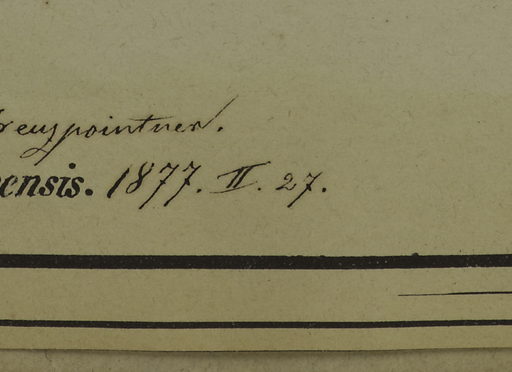 reuzpointner.
ensis. 1877. II. 27.